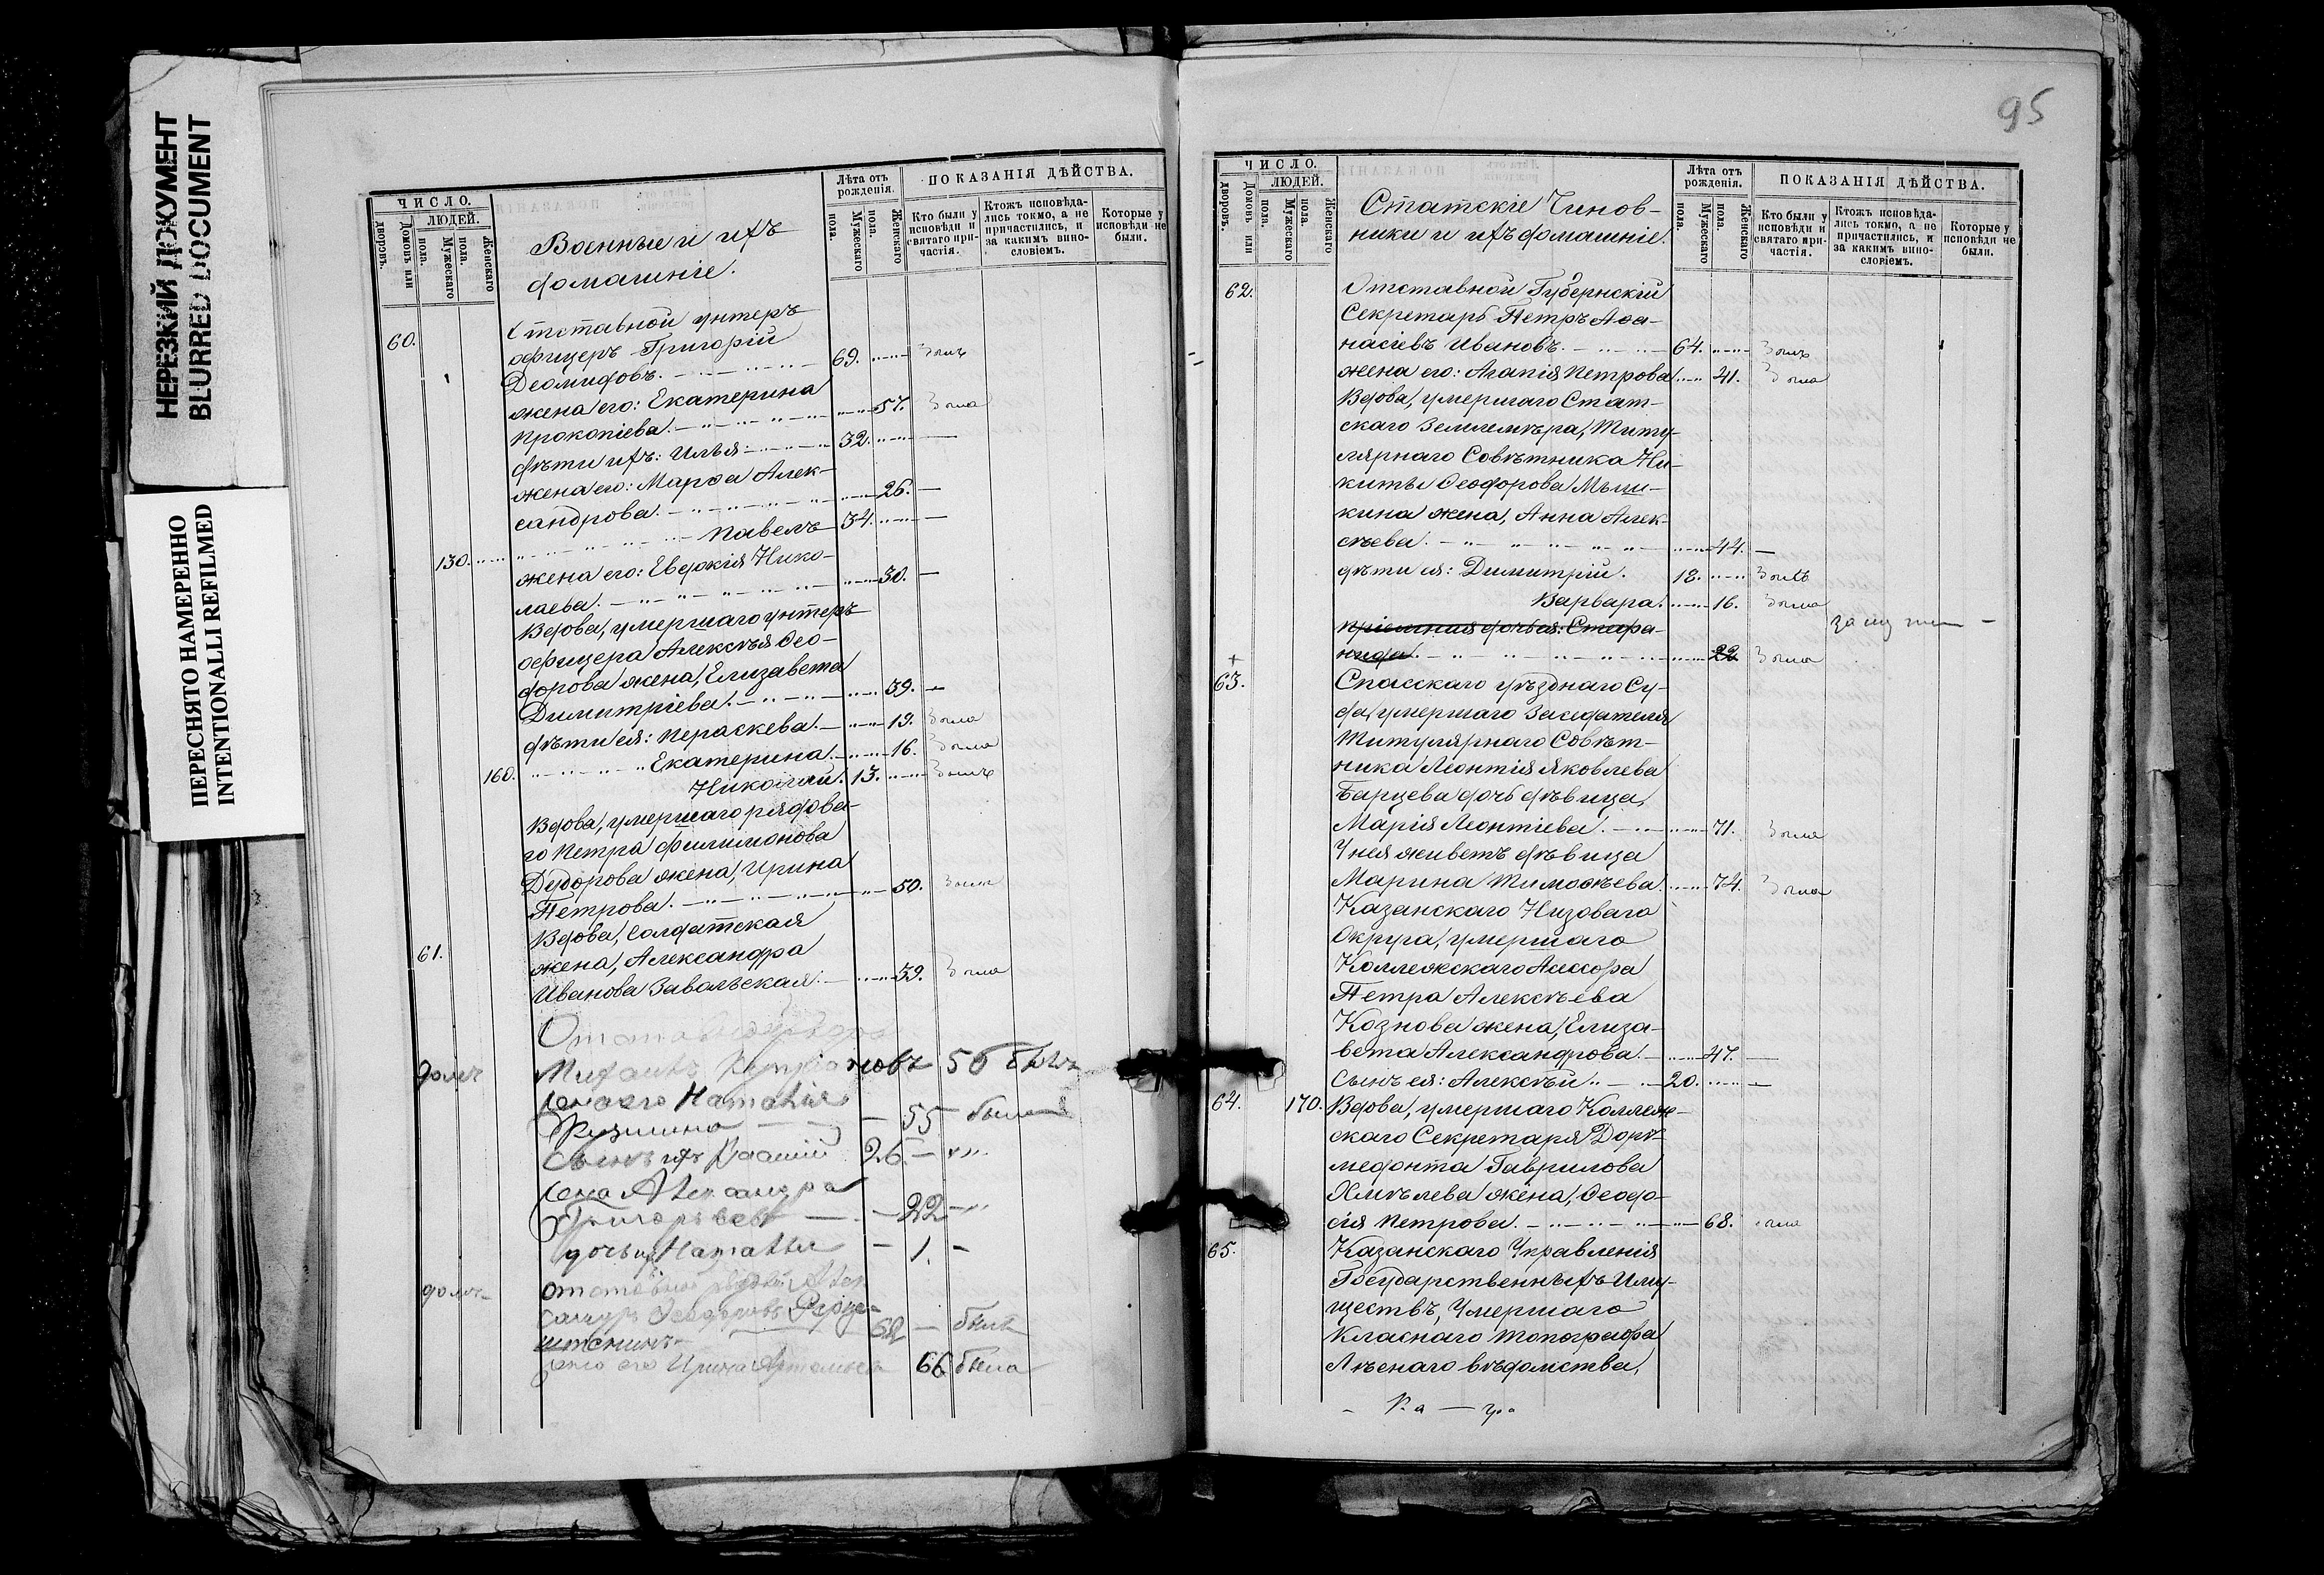 НЕРЕЗКИЙ ДОКУМЕНТ
BLURRED DOCUMENT
ПЕРЕСНЯТО НАМЕРЕННО
INTENTIONALLI REFILMED
ЧИСЛО.
ЛЮДЕЙ.
Домовъ или дворовъ.
Мужескаго пола.
Женскаго пола.
Военные и ихъ
домашніе.
Лѣта отъ рожденія.
Мужескаго пола.
Женскаго пола.
ПОКАЗАНІЯ ДѢЙСТВА.
Кто были у исповѣди и святаго причастія.
Ктожъ исповѣдались токмо, а не причастились, и за какимъ винословіемъ.
Которые у исповѣди не были.
60. Отставной унтеръ
офицеръ Григорій
Деомидовъ. 69. Былъ
жена его: Екатерина
Прокопіева. 57. Была
дѣти ихъ: Илья 32. —
жена его: Марѳа Алек-
сандрова. 26. —
130. Павелъ 34. —
жена его: Евдокія Нико-
лаева. 30. —
Вдова, умершаго унтеръ
офицера Алексѣя Ѳео-
дорова жена, Елизавета
Димитріева. 39. —
дѣти ея: Параскева. 19. Была
160. Екатерина. 16. Была
Николай. 13. Былъ
Вдова, умершаго рядова-
го Петра Филимонова
Дудорова жена, Ирина
Петрова. 50. Была
61. Вдова, солдатская
жена, Александра
Иванова Завальская. 39. Была
домъ Михаилъ 56 былъ
жена его Наталія
Кузмина 55 была
Сынъ ихъ 26 —
жена Александра
Григорьева 22
дочь их Наталья 1. —
домъ
68 — былъ
жена его Ирина 66 была
95
ЧИСЛО.
ЛЮДЕЙ.
Домовъ или дворовъ.
Мужескаго пола.
Женскаго пола.
Статскіе Чинов-
ники и ихъ домашніе.
Лѣта отъ рожденія.
Мужескаго пола.
Женскаго пола.
ПОКАЗАНІЯ ДѢЙСТВА.
Кто были у исповѣди и святаго причастія.
Ктожъ исповѣдались токмо, а не причастились, и за какимъ винословіемъ.
Которые у исповѣди не были.
62. Отставной Губернскій
Секретарь Петръ Аѳа-
насіевъ Ивановъ. 64. Былъ
жена его: Агапія Петрова 41. Была
Вдова, умершаго Стат-
скаго Землемѣра, Титу-
лярнаго Совѣтника Ни-
киты Ѳеодорова Мыш-
кина жена, Анна Алек-
сѣева. 44. —
дѣти ея: Димитрій. 18. Былъ
Варвара. 16. Была
пріемная дочь ея: Стефа-
нида. 22 Была
63. Спасскаго уѣзднаго Су-
да, умершаго Заседателя
Титулярнаго Совѣт-
ника Леонтія Яковлева
Барцева дочь дѣвица,
Марія Леонтіева. 71. Была
У нея живетъ дѣвица
Марина Тимоѳѣева. 74. Была
Казанскаго Низоваго
Округа, умершаго
Коллежскаго Ассесора
Петра Алексѣева
Кознова жена, Елиза-
вета Александрова. 47. —
сынъ ея: Алексѣй 20. —
64. 170. Вдова, умершаго Коллеж-
скаго Секретаря Дори-
медонта Гаврилова
Хмѣлева жена, Ѳеодо-
сія Петрова. 68. была
65. Казанскаго Управленія
Государственныхъ Иму-
ществъ, Умершаго
Класнаго топографа
Лѣснаго вѣдомства,